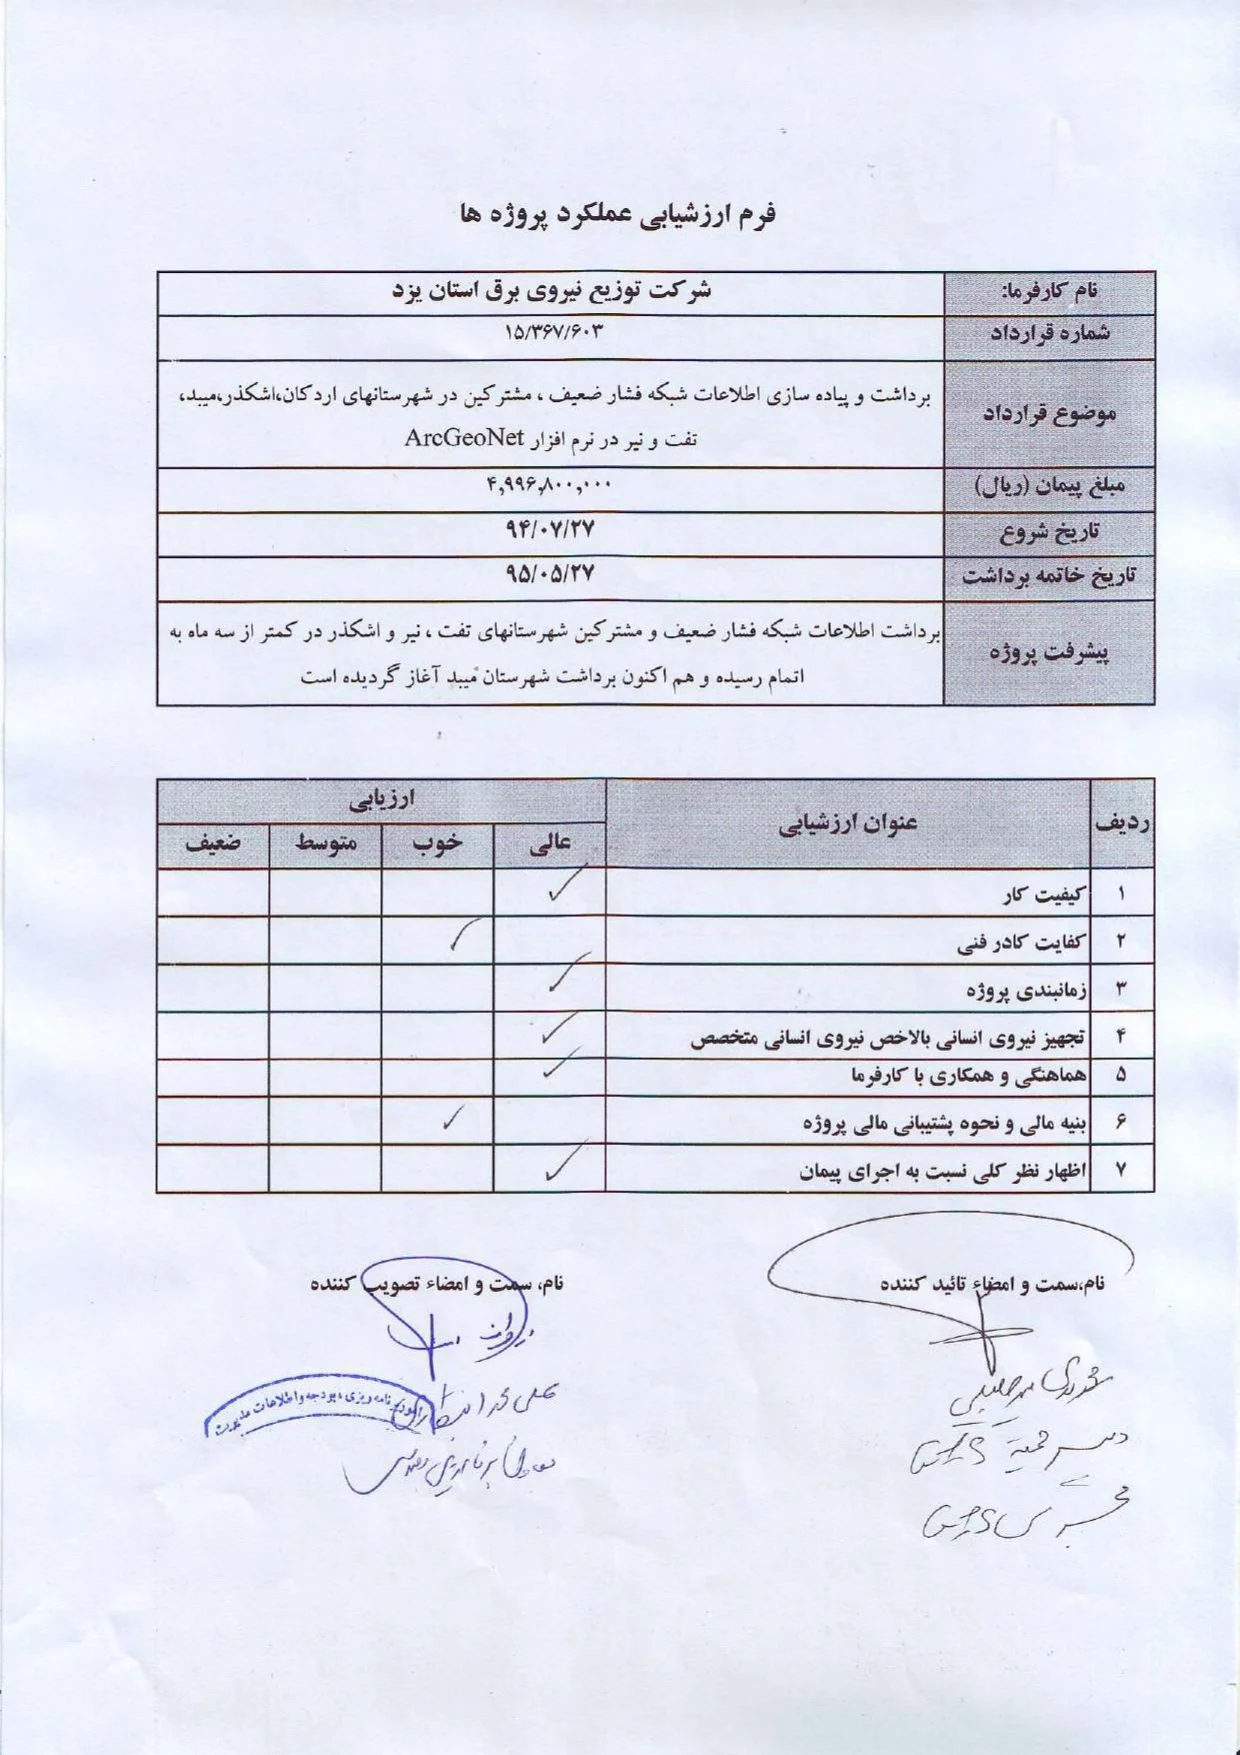 فرم ارزشیابی عملکرد پروژه ها
نام کارفرما: شرکت توزیع نیروی برق استان یزد
شماره قرارداد ۱۵/۳۶۷/۶۰۳
موضوع قرارداد برداشت و پیاده سازی اطلاعات شبکه فشار ضعیف ، مشترکین در شهرستانهای اردکان،اشکذر،میبد،
تفت و نیر در نرم افزار ArcGeoNet
مبلغ پیمان (ریال) ۴,۹۹۶,۸۰۰,۰۰۰
تاریخ شروع ۹۴/۰۷/۲۷
تاریخ خاتمه برداشت ۹۵/۰۵/۲۷
پیشرفت پروژه برداشت اطلاعات شبکه فشار ضعیف و مشترکین شهرستانهای تفت ، نیر و اشکذر در کمتر از سه ماه به
اتمام رسیده و هم اکنون برداشت شهرستان میبد آغاز گردیده است
ردیف عنوان ارزشیابی ارزیابی
عالی خوب متوسط ضعیف
۱ کیفیت کار ✓
۲ کفایت کادر فنی ✓
۳ زمانبندی پروژه ✓
۴ تجهیز نیروی انسانی بالاخص نیروی انسانی متخصص ✓
۵ هماهنگی و همکاری با کارفرما ✓
۶ بنیه مالی و نحوه پشتیبانی مالی پروژه ✓
۷ اظهار نظر کلی نسبت به اجرای پیمان ✓
نام،سمت و امضاء تائید کننده
نام، سمت و امضاء تصویب کننده
GIS
GIS